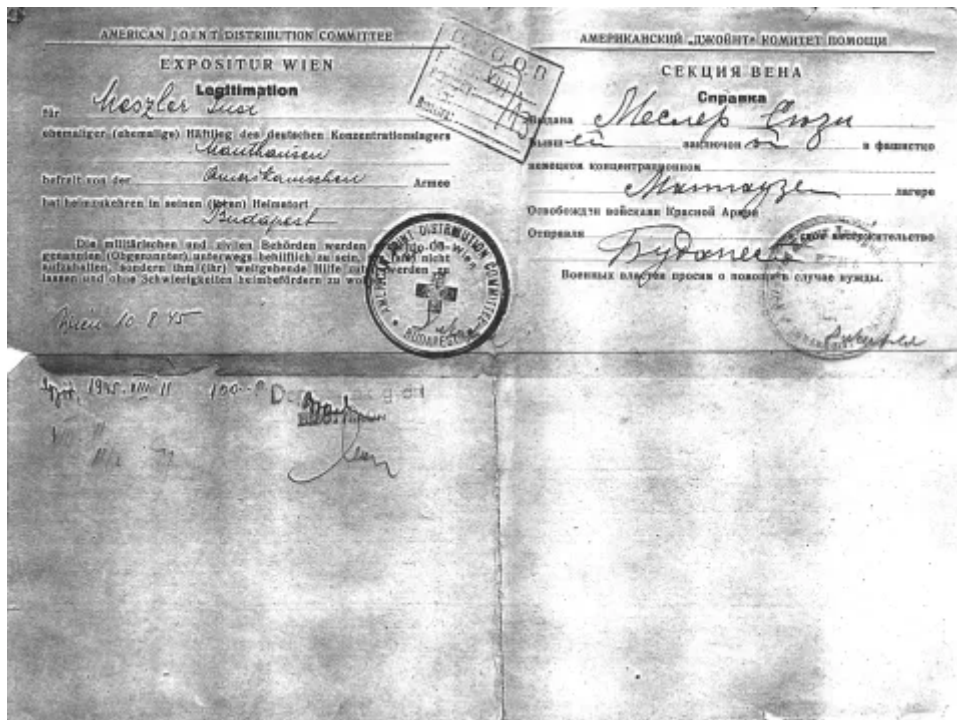 AMERICAN JOINT DISTRIBUTION COMMITTEE
EXPOSITUR WIEN
Legitimation
für Meszler Susi
ehemaliger (ehemalige) Häftling des deutschen Konzentrationslagers
Mauthausen
befreit von der Amerikanischen Armee
hat heimzukehren in seinen (ihren) Heimatort
Budapest
Die militärischen und zivilen Behörden werden
genannten (Obgenannter) unterwegs behilflich zu sein, nicht
aufzuhalten, sondern ihm (ihr) weitgehende Hilfe werden zu
lassen und ohne Schwierigkeiten heimbefördern zu
Wien 10 8 45
AMERICAN JOINT DISTRIBUTION COMMITTEE
BUDAPEST
АМЕРИКАНСКИЙ „ДЖОЙНТ“ КОМИТЕТ ПОМОЩИ
СЕКЦИЯ ВЕНА
Справка
Выдана Меслер Сюзи
бывш ей заключен ой в фашистко
немецком концентрационном
Маттаузен лагере
Освобождти войсками Красной Армии
Отправля
Будапешт
Военных властей просим о помощи в случае нужды.
Győr, 1945. VIII 11 100